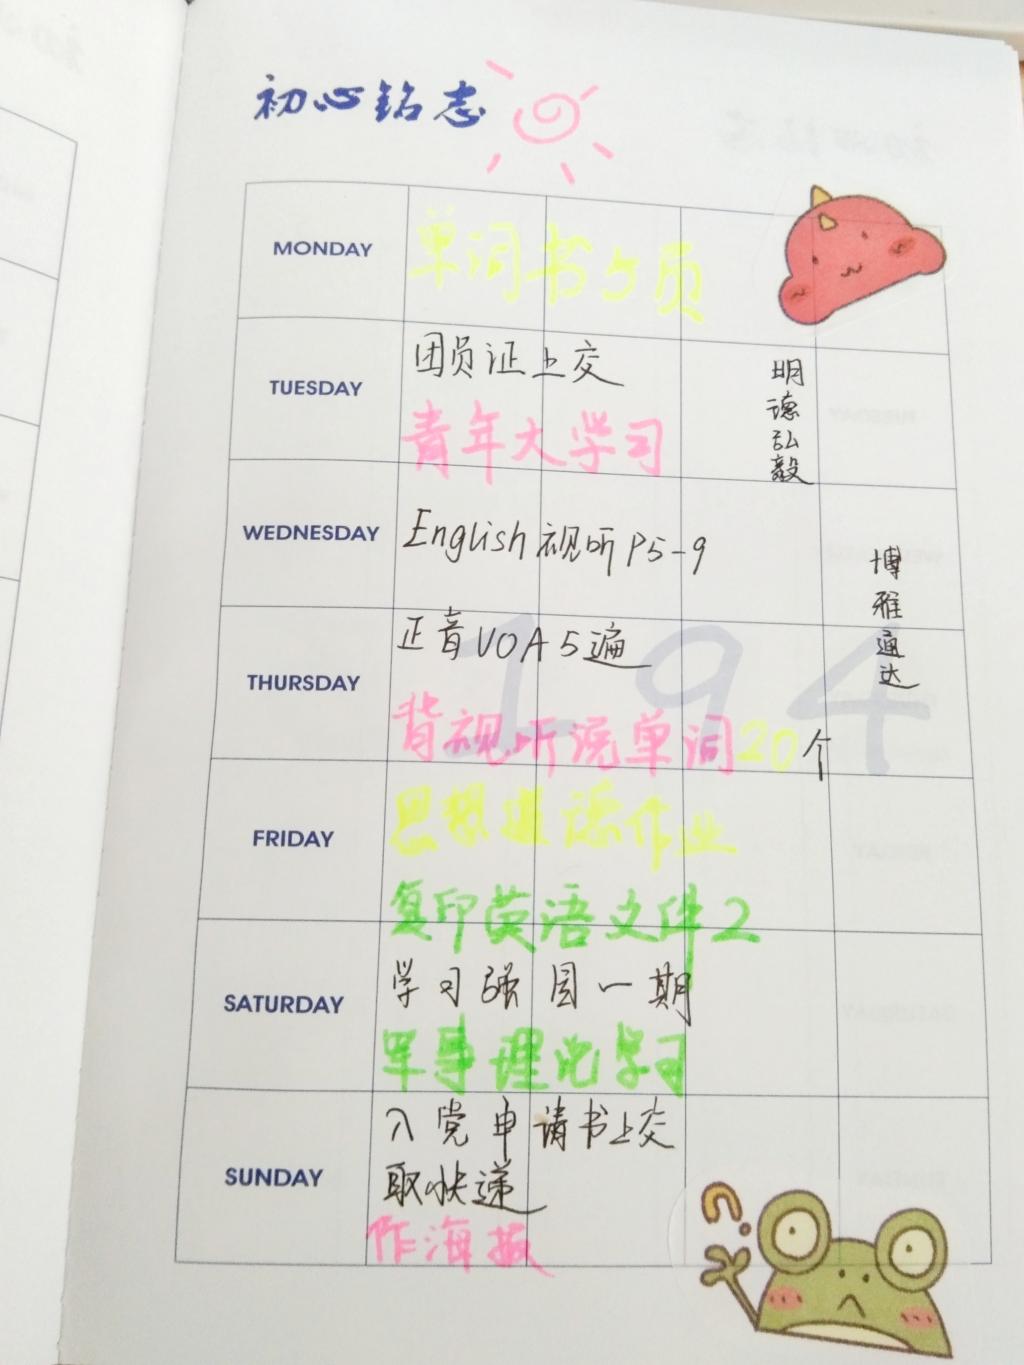 初心铭志
MONDAY
单词书5页
TUESDAY
团员证上交
青年大学习
明德弘毅
WEDNESDAY
English视听P5-9
博雅通达
THURSDAY
正音VOA5遍
背视听说单词20个
194
FRIDAY
思想道德作业
复印英语文件2
SATURDAY
学习强国一期
军事理论学习
SUNDAY
入党申请书上交
取快递
作海报
?